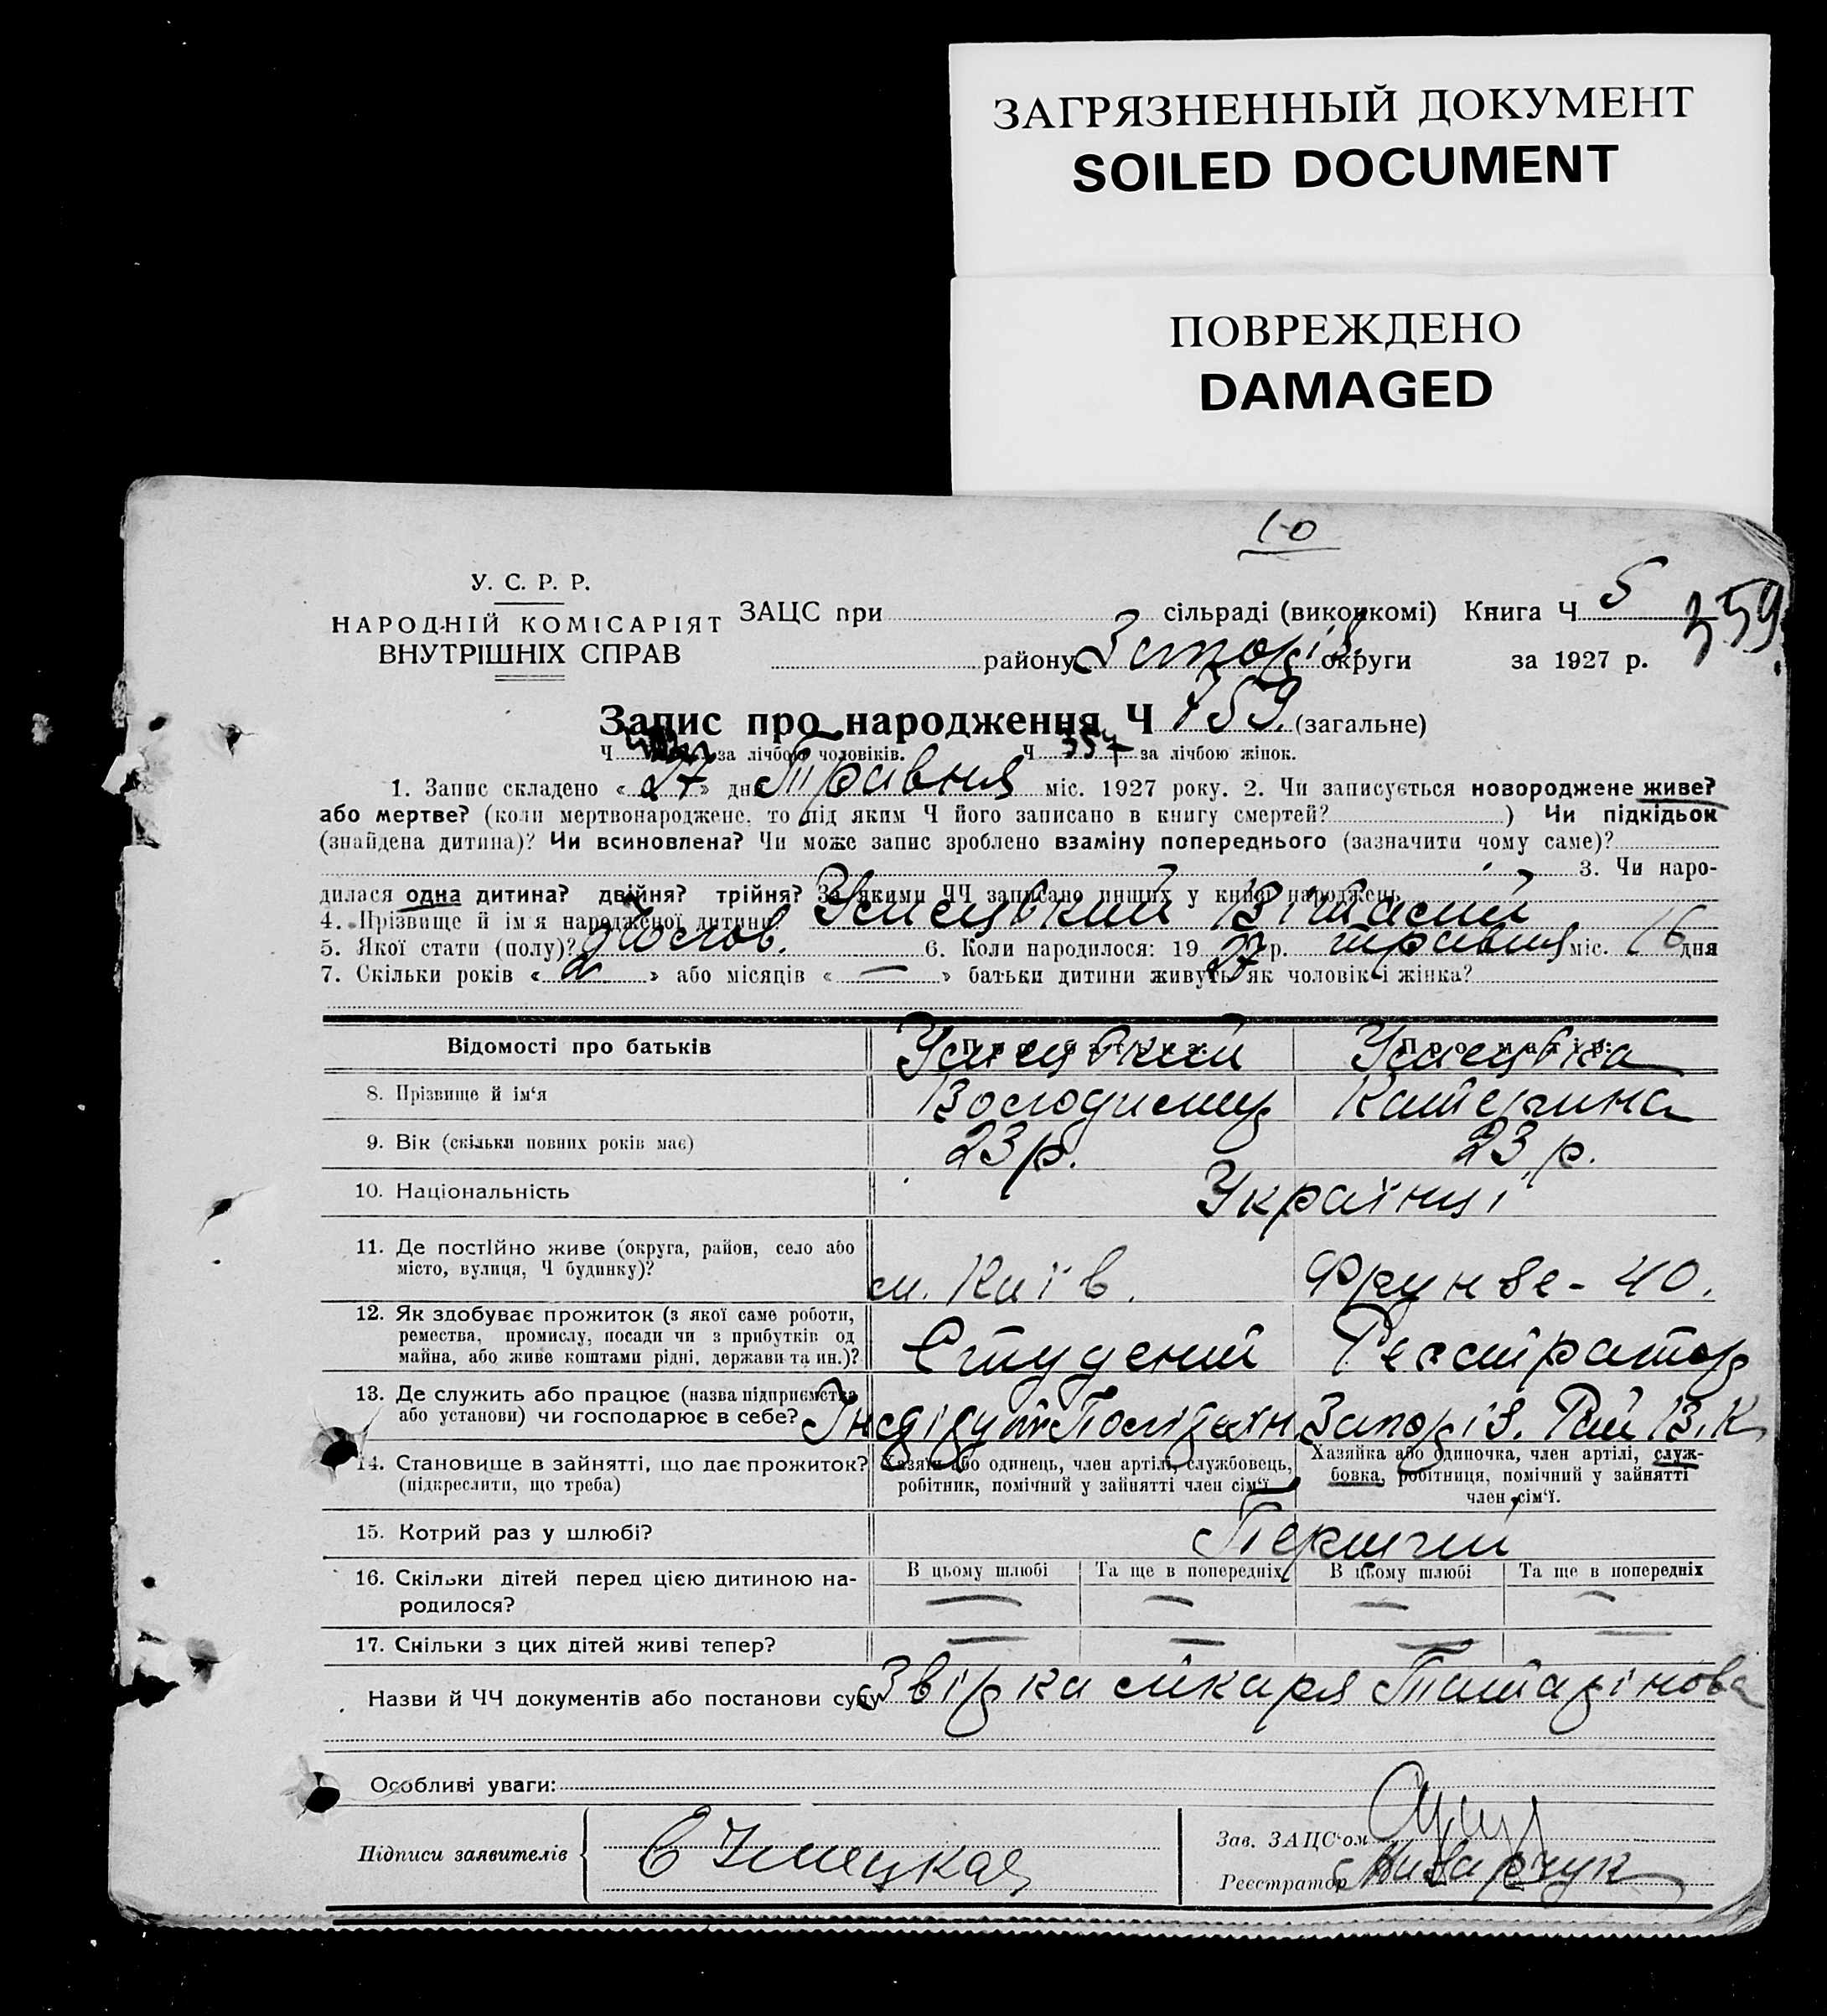 ЗАГРЯЗНЕННЫЙ ДОКУМЕНТ
SOILED DOCUMENT
ПОВРЕЖДЕНО
DAMAGED
10
У. С. Р. Р.
НАРОДНІЙ КОМІСАРІЯТ
ВНУТРІШНІХ СПРАВ
ЗАЦС при сільраді (виконкомі) Книга Ч 5
359
району Запоріз. округи за 1927 р.
Запис про народження Ч 759. (загальне)
Ч за лічбою чоловіків. Ч 357 за лічбою жінок.
1. Запис складено « 27 » дня Травня міс. 1927 року. 2. Чи записується новороджене живе?
або мертве? (коли мертвонароджене, то під яким Ч його записано в книгу смертей? ) Чи підкідьок
(знайдена дитина)? Чи всиновлена? Чи може запис зроблено взаміну попереднього (зазначити чому саме)?
3. Чи наро-
дилася одна дитина? двійня? трійня? За якими ЧЧ записано инших у книзі народжень
4. Прізвище й ім'я народженої дитини Віталій
5. Якої стати (полу)? чолов. 6. Коли народилося: 19 27 р. травня міс. 16 дня
7. Скільки років « 2 » або місяців « — » батьки дитини живуть як чоловік і жінка?
Відомості про батьків
Про батька
Про матір:
8. Прізвище й ім'я Володимир Катерина
9. Вік (скільки повних років має) 23 р. 23 р.
10. Національність Українці
11. Де постійно живе (округа, район, село або
місто, вулиця, Ч будинку)?
м. Київ. Фрунзе - 40.
12. Як здобуває прожиток (з якої саме роботи,
ремества, промислу, посади чи з прибутків од
майна, або живе коштами рідні, держави та ин.)?
Студент Реєстратор
13. Де служить або працює (назва підприємства
або установи) чи господарює в себе?
Запоріз. Рай В.К
14. Становище в зайнятті, що дає прожиток?
(підкреслити, що треба)
Хазяїн або одинець, член артілі, службовець,
робітник, помічний у зайнятті член сім'ї
Хазяйка або одиночка, член артілі, служ-
бовка, робітниця, помічний у зайнятті
член сім'ї.
15. Котрий раз у шлюбі? Перший
16. Скільки дітей перед цією дитиною на-
родилося?
В цьому шлюбі Та ще в попередніх В цьому шлюбі Та ще в попередніх
— — — —
17. Скільки з цих дітей живі тепер? — — — —
Назви й ЧЧ документів або постанови суду лікаря
Особливі уваги:
Підписи заявителів
Зав. ЗАЦС'ом
Реєстратор